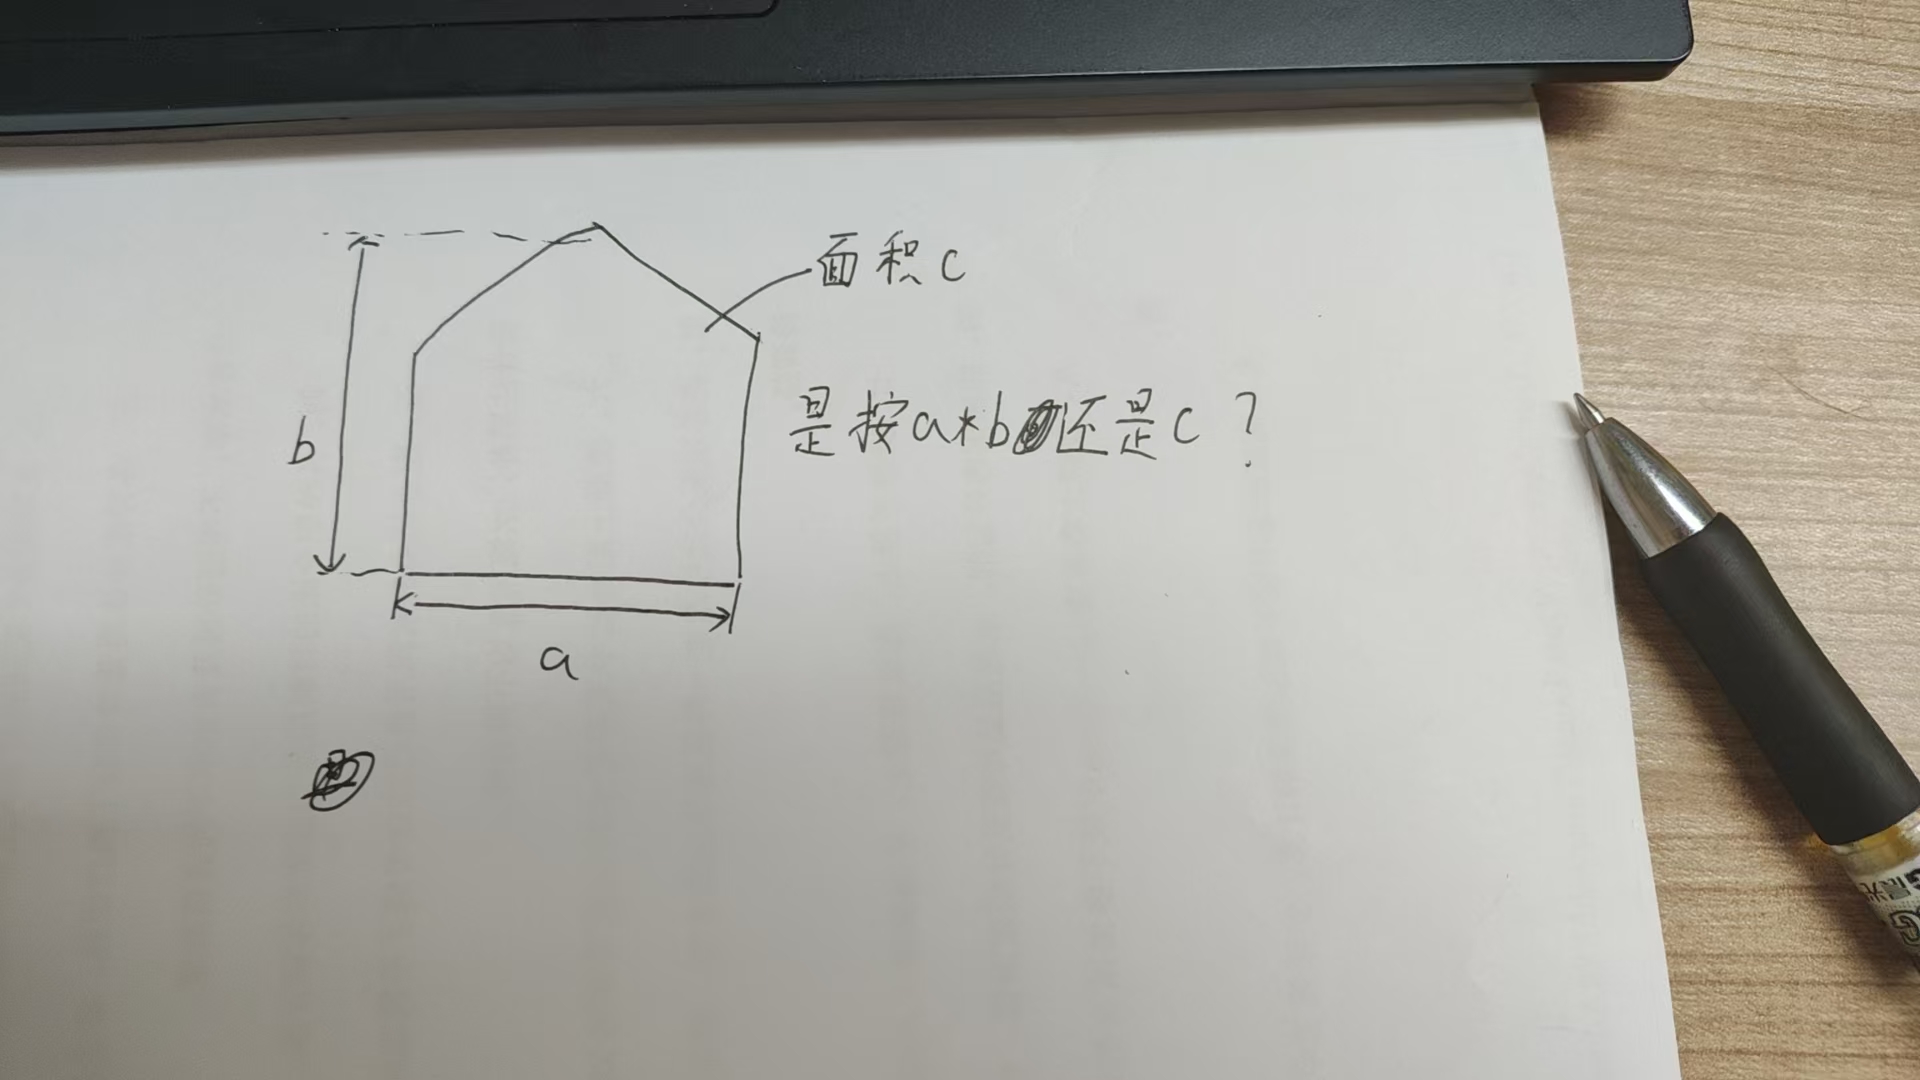 面积c
b
是按a*b还是c?
a